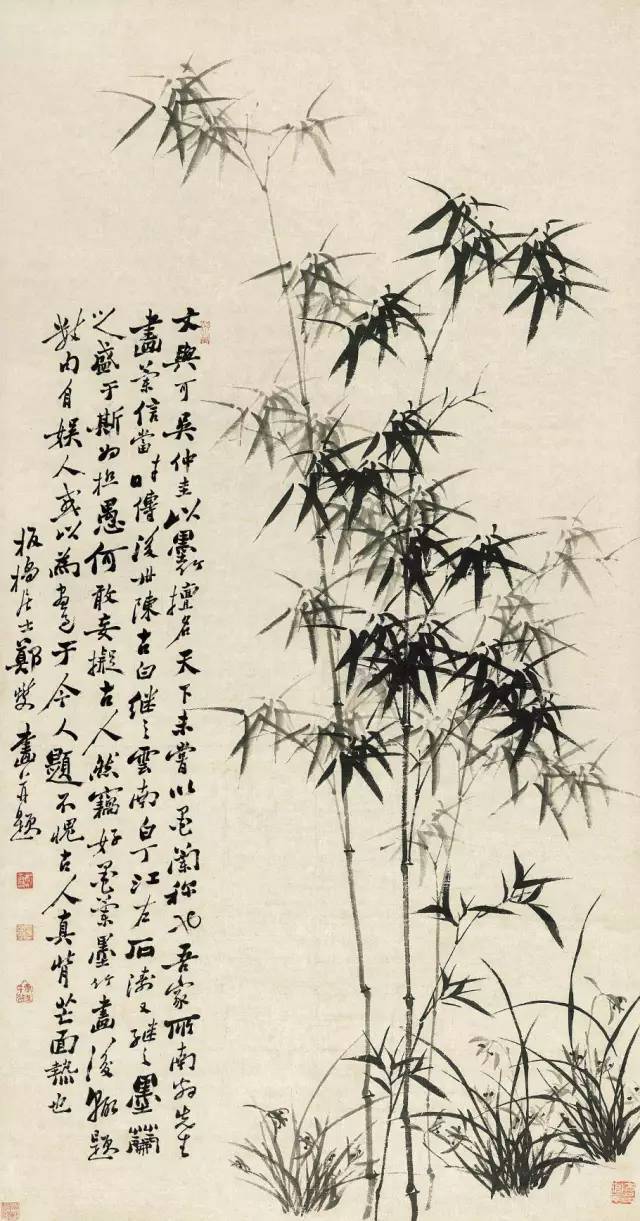 文與可吳仲圭以墨竹擅名天下未嘗以墨蘭称也吾家所南翁先生
畫蘭信當時傳後世陳古白継之雲南白丁江左石濤又継之墨蘭
之盛于斯为極愚何敢妄擬古人然竊好墨蘭墨竹畫後輒題
數句自娱人或以為于今人題不愧古人真背芒面熱也
板橋居士鄭燮畫并題